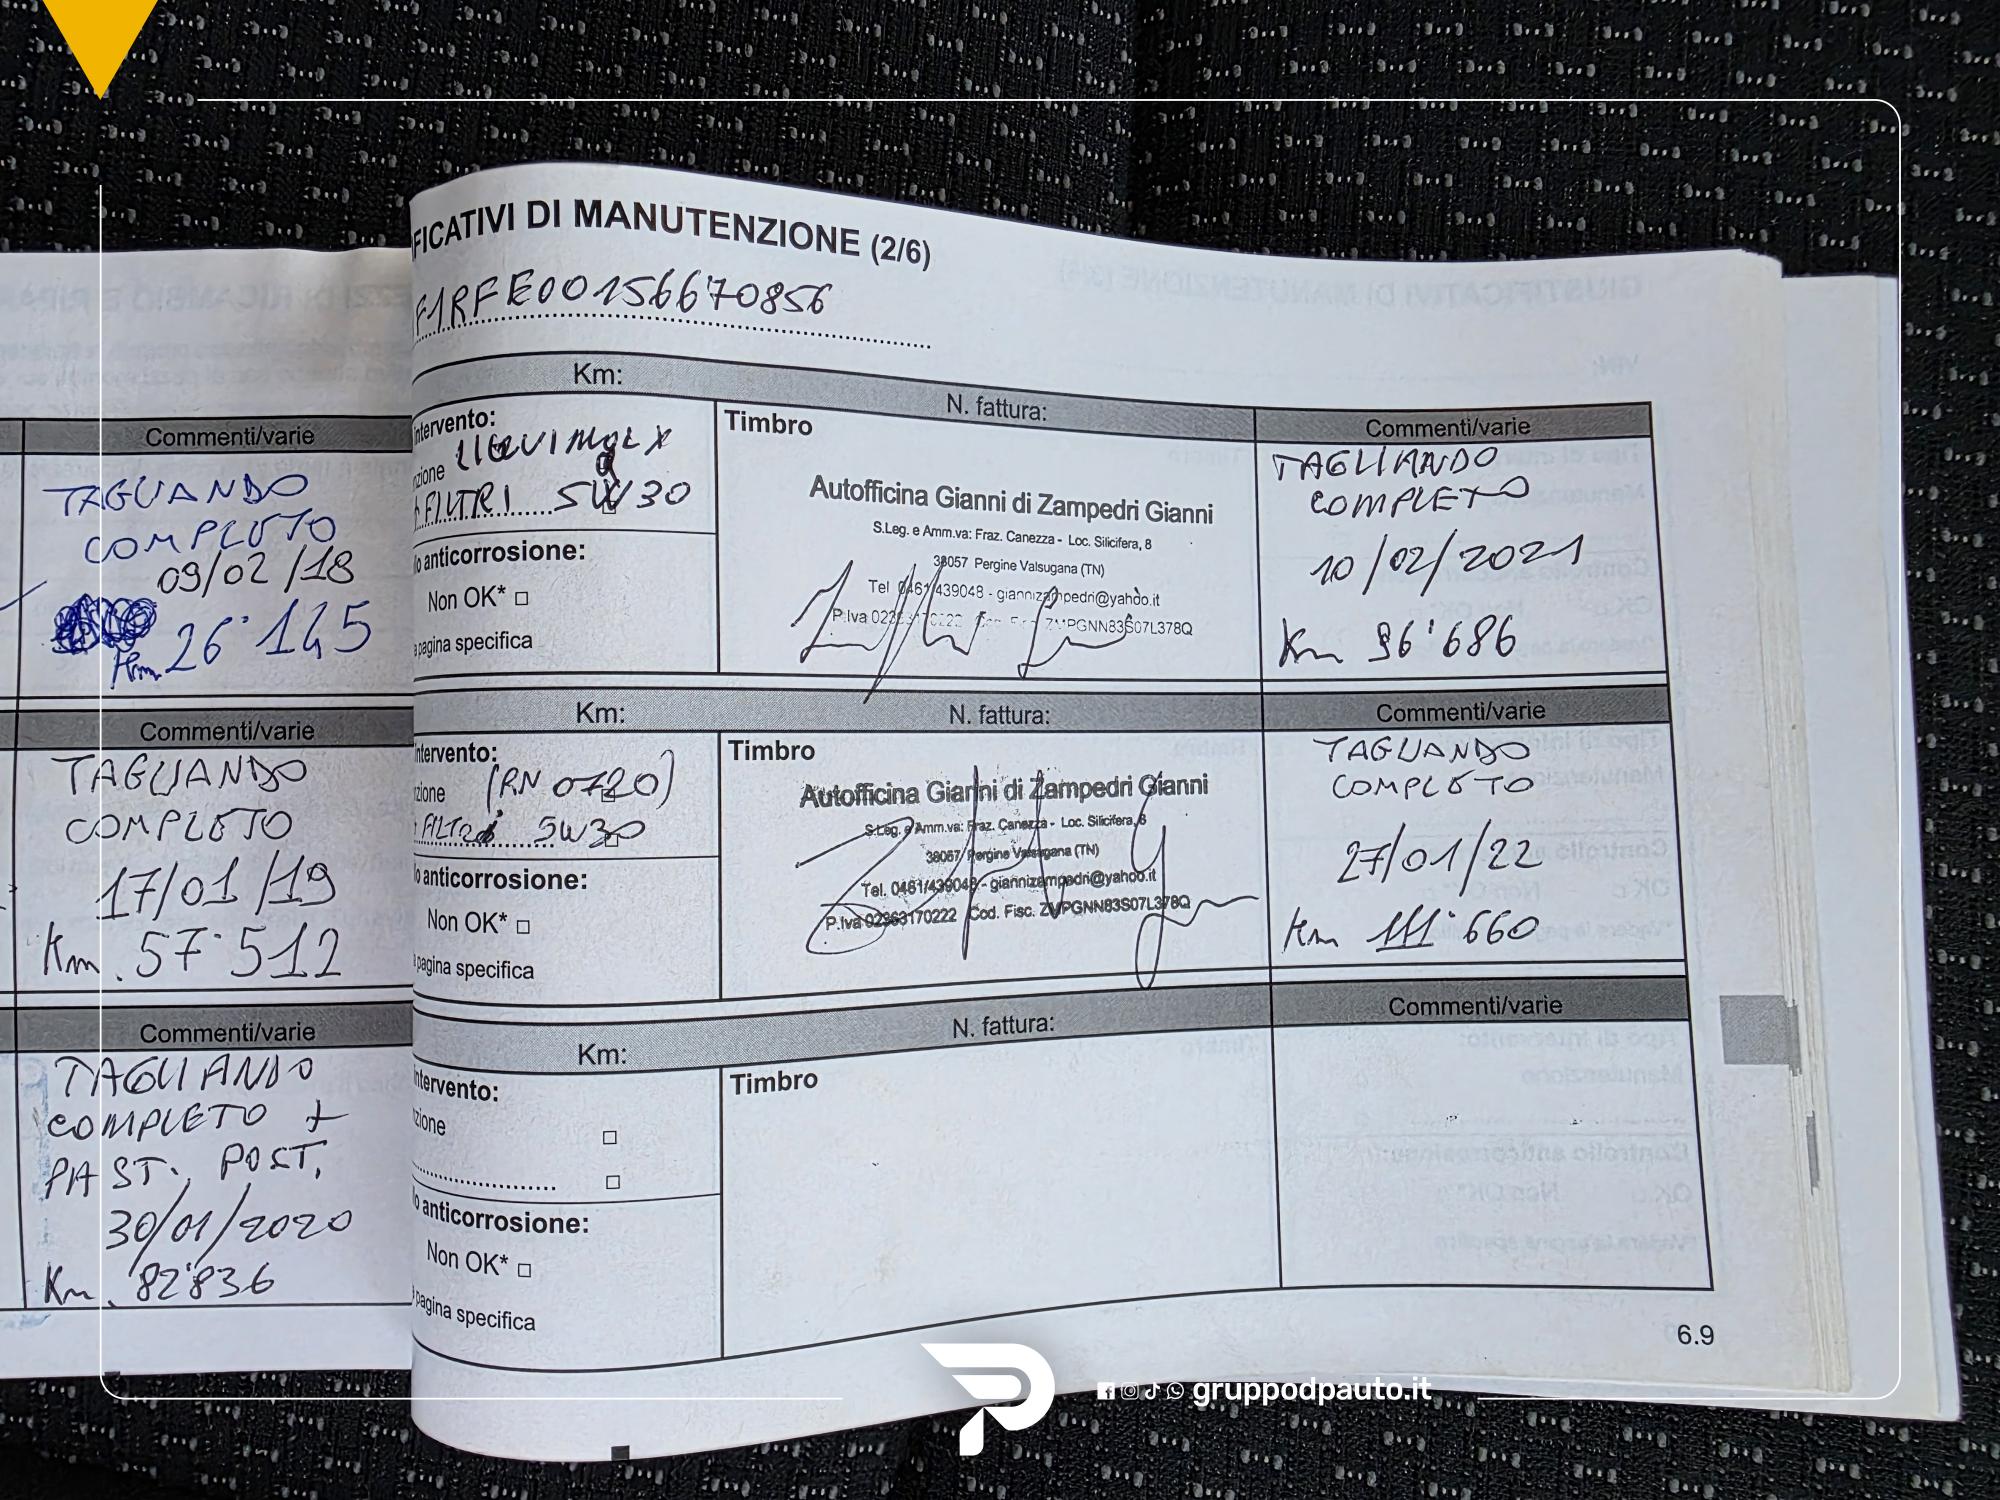 Commenti/varie
TAGLIANDO
COMPLETO
09/02/18
Km 26'145
Commenti/varie
TAGLIANDO
COMPLETO
17/01/19
Km. 57'512
Commenti/varie
TAGLIANDO
COMPLETO +
PAST. POST.
30/01/2020
Km. 82'836
FICATIVI DI MANUTENZIONE (2/6)
F1RFE00156670856
Km:
N. fattura:
Commenti/varie
intervento:
zione LIQUI MOLY
FILTRI 5W30
o anticorrosione:
Non OK*
pagina specifica
Timbro
Autofficina Gianni di Zampedri Gianni
S.Leg. e Amm.va: Fraz. Canezza - Loc. Silicifera, 8
38057 Pergine Valsugana (TN)
Tel 0461/439048 - giannizampedri@yahoo.it
P.Iva ZMPGNN83S07L378Q
TAGLIANDO
COMPLETO
10/02/2021
Km 96'686
Km:
N. fattura:
Commenti/varie
ntervento:
zione (RN 0720)
FILTRI 5W30
o anticorrosione:
Non OK*
pagina specifica
Timbro
Autofficina Gianni di Zampedri Gianni
S.Leg. e Amm.va: Fraz. Canezza - Loc. Silicifera, 8
38057 Pergine Valsugana (TN)
Tel. 0461/439048 - giannizampedri@yahoo.it
P.Iva 02363170222 Cod. Fisc. ZMPGNN83S07L378Q
TAGLIANDO
COMPLETO
27/01/22
Km 111'660
Km:
N. fattura:
Commenti/varie
ntervento:
zione
o anticorrosione:
Non OK*
pagina specifica
Timbro
6.9
gruppodpauto.it